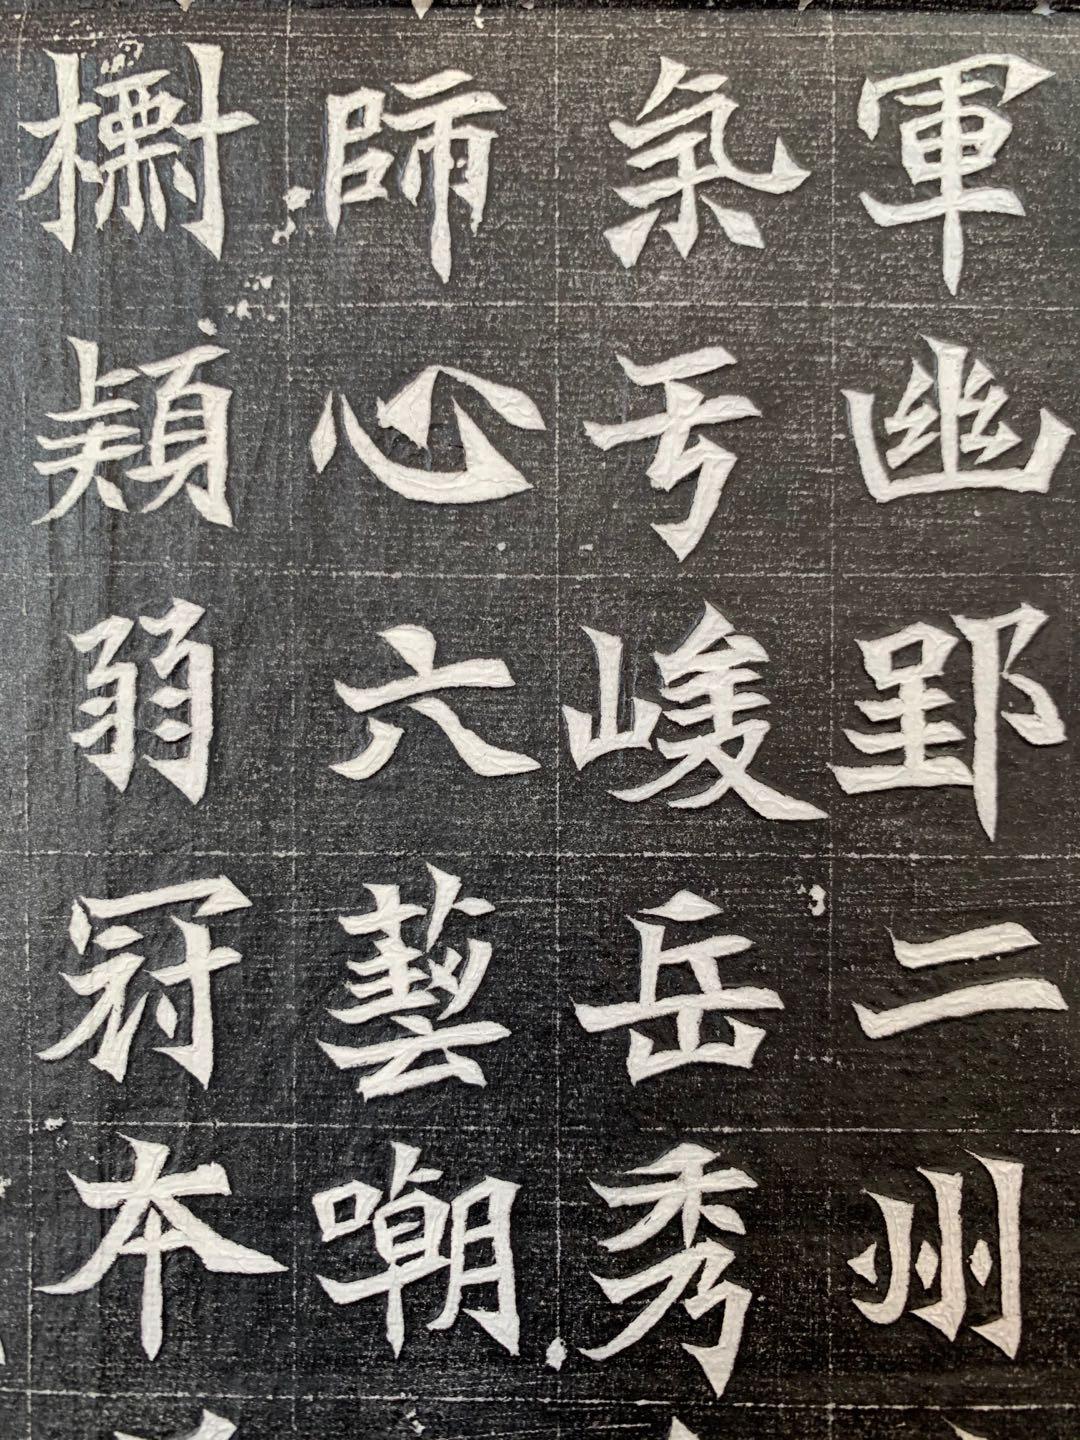 軍幽郢二州
氣亐峻岳秀
師心六藝嘲
穎弱冠本